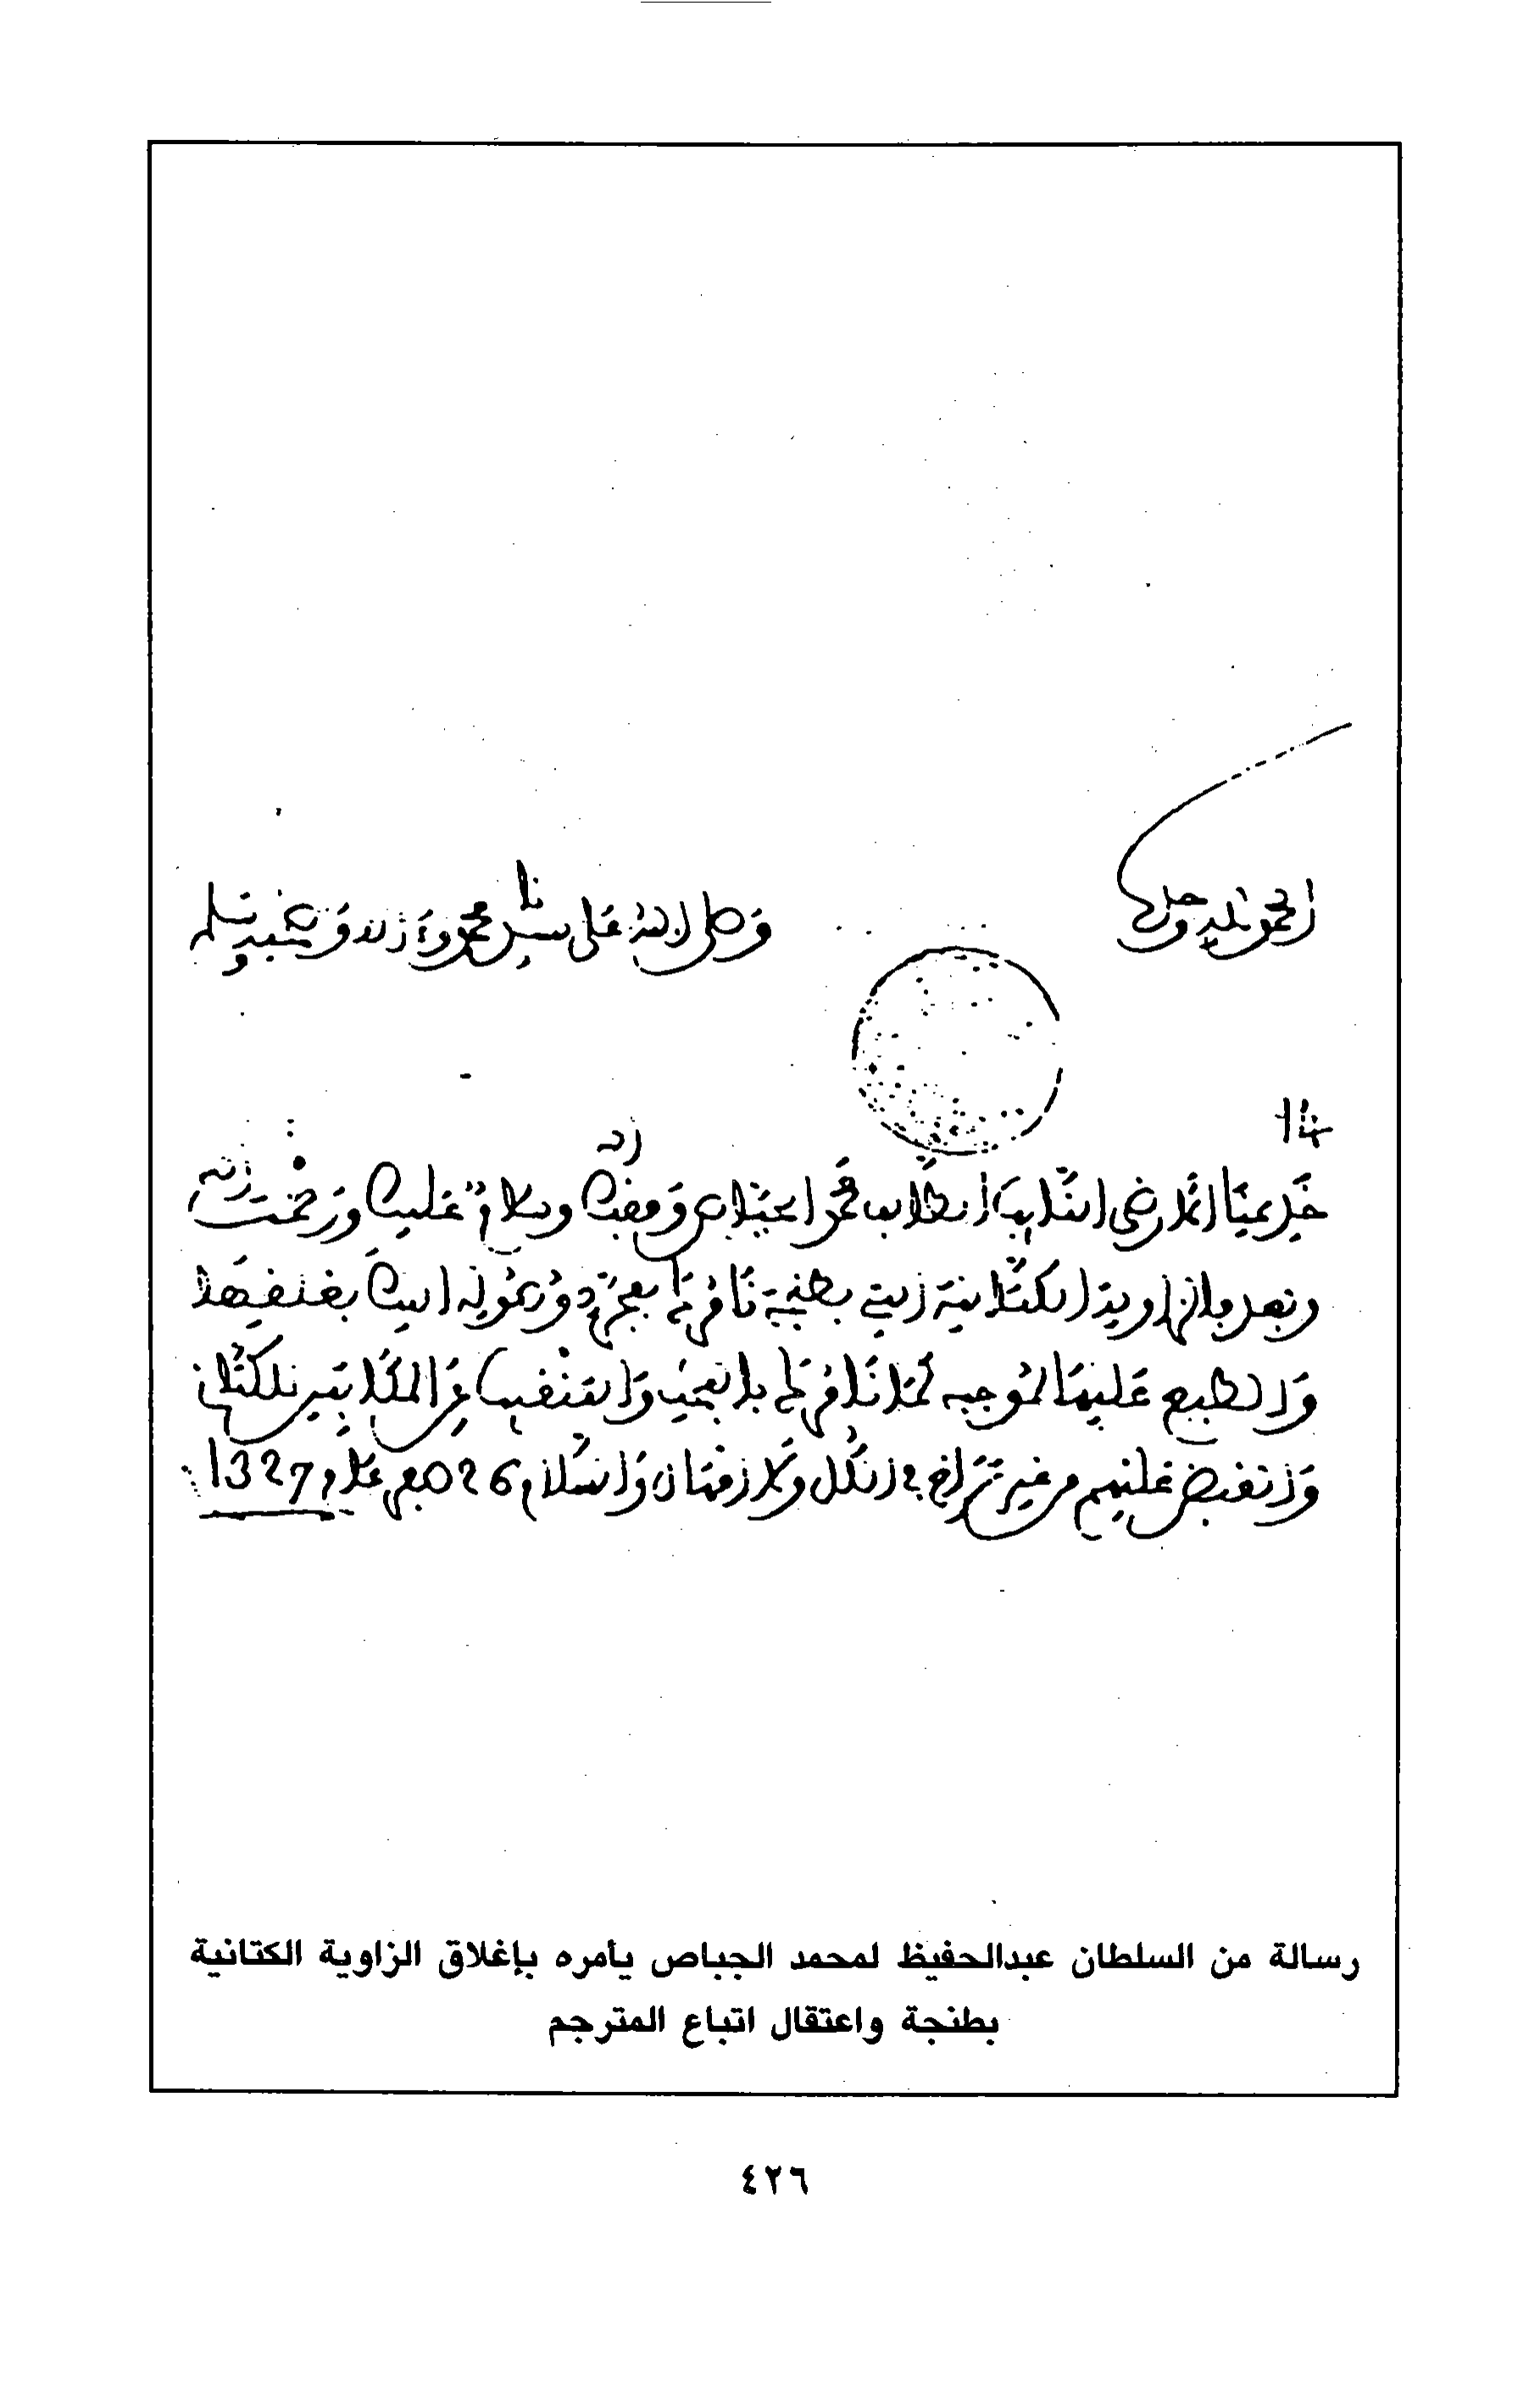 الحمد لله وحده
وصلى الله على سيدنا محمد وءاله وصحبه وسلم
خديمنا الأرضى النائب الطالب محمد الجباص وفقك الله وسلام عليك ورحمت الله
وبعد فإن الزاوية الكتانية التي بطنجة نأمرك بمجرد وصوله إليك بغلقها
والطبع عليها كما نأمرك بالبحث والتنقيب عن المكاتبين للكتاني
والقبض عليهم من غير تراخ في ذلك ولا والسلام 26 صفر عام 1327
رسالة من السلطان عبدالحفيظ لمحمد الجباص يأمره بإغلاق الزاوية الكتانية
بطنجة واعتقال اتباع المترجم
٤٢٦